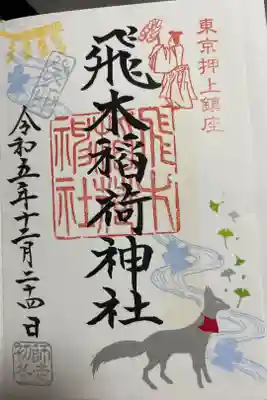 東京押上鎮座
飛木稲荷神社
飛木
稲荷
神社
令和五年十二月二十四日